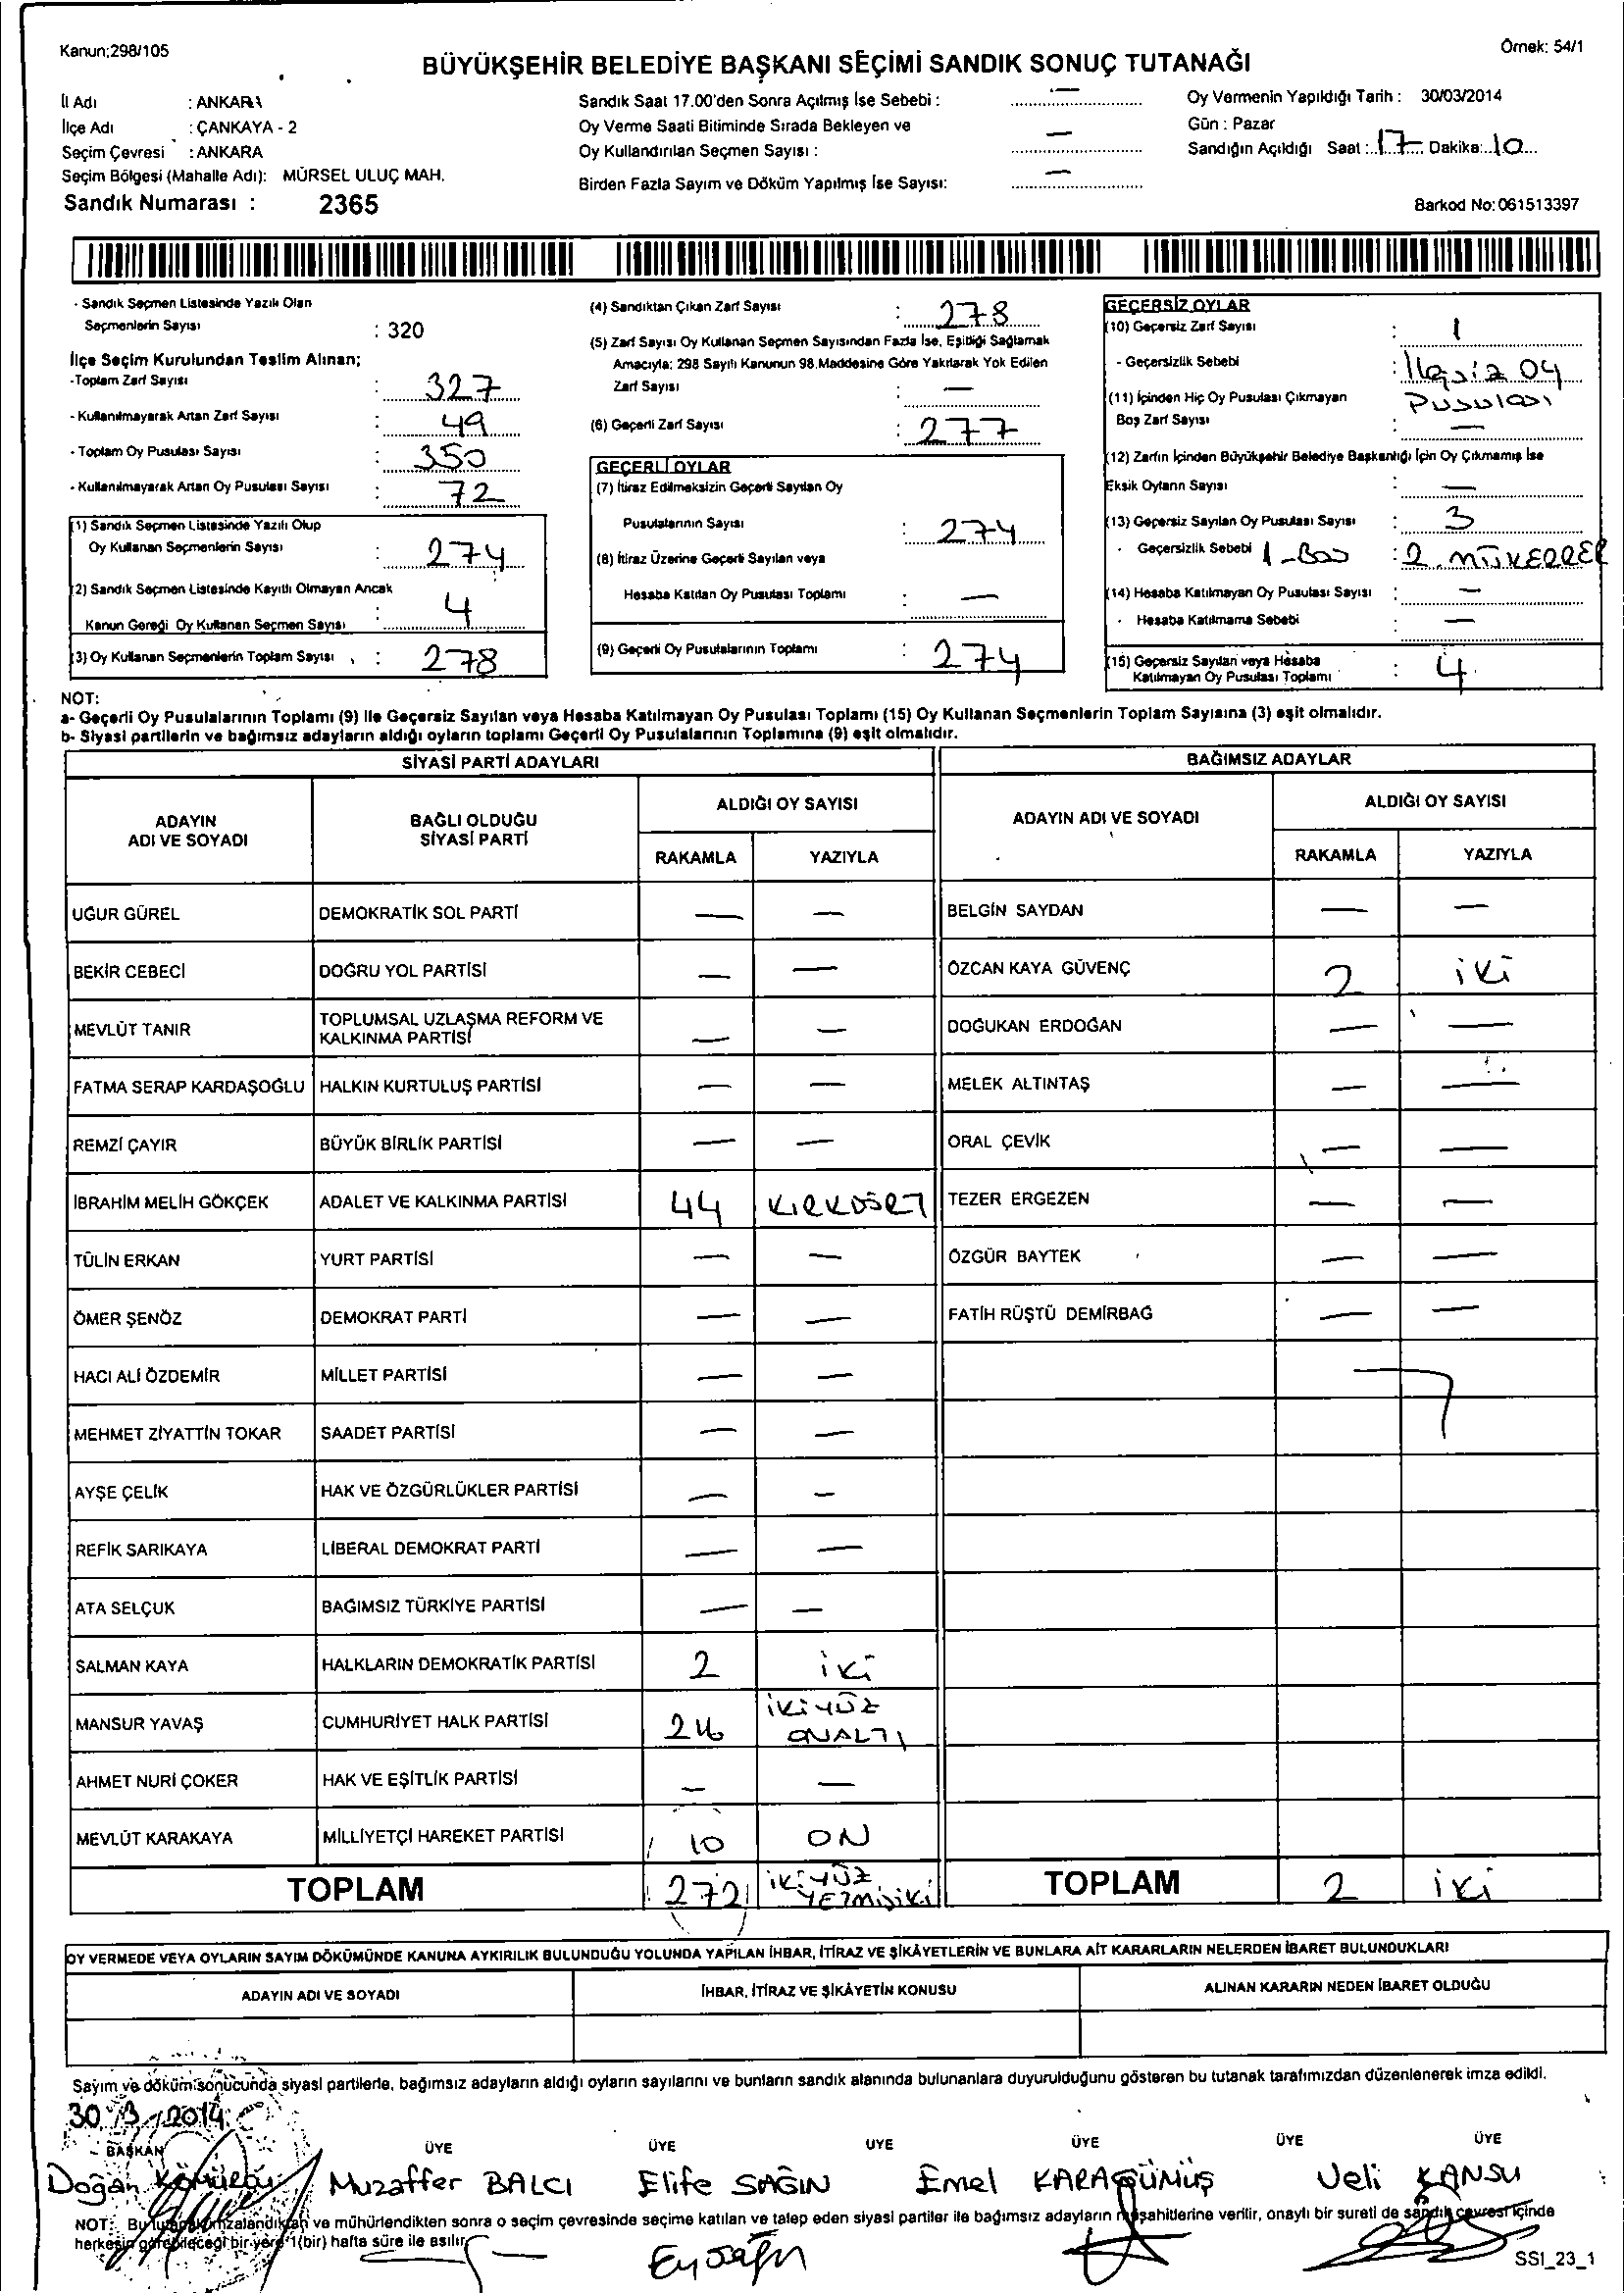 Kanun;298/105
Örnek: 54/1
BÜYÜKŞEHİR BELEDİYE BAŞKANI SEÇİMİ SANDIK SONUÇ TUTANAĞI
İl Adı : ANKARA
İlçe Adı : ÇANKAYA - 2
Seçim Çevresi : ANKARA
Seçim Bölgesi (Mahalle Adı): MÜRSEL ULUÇ MAH.
Sandık Numarası : 2365
Sandık Saat 17.00'den Sonra Açılmış İse Sebebi : —
Oy Verme Saati Bitiminde Sırada Bekleyen ve
Oy Kullandırılan Seçmen Sayısı : —
Birden Fazla Sayım ve Döküm Yapılmış İse Sayısı: —
Oy Vermenin Yapıldığı Tarih : 30/03/2014
Gün : Pazar
Sandığın Açıldığı Saat : 17 Dakika: 10
Barkod No:061513397
- Sandık Seçmen Listesinde Yazılı Olan
Seçmenlerin Sayısı : 320
İlçe Seçim Kurulundan Teslim Alınan;
-Toplam Zarf Sayısı : 327
- Kullanılmayarak Artan Zarf Sayısı : 49
- Toplam Oy Pusulası Sayısı : 350
- Kullanılmayarak Artan Oy Pusulası Sayısı : 72
(1) Sandık Seçmen Listesinde Yazılı Olup
Oy Kullanan Seçmenlerin Sayısı : 274
(2) Sandık Seçmen Listesinde Kayıtlı Olmayan Ancak
Kanun Gereği Oy Kullanan Seçmen Sayısı : 4
(3) Oy Kullanan Seçmenlerin Toplam Sayısı : 278
(4) Sandıktan Çıkan Zarf Sayısı : 278
(5) Zarf Sayısı Oy Kullanan Seçmen Sayısından Fazla İse, Eşitliği Sağlamak
Amacıyla; 298 Sayılı Kanunun 98.Maddesine Göre Yakılarak Yok Edilen
Zarf Sayısı : —
(6) Geçerli Zarf Sayısı : 277
GEÇERLİ OYLAR
(7) İtiraz Edilmeksizin Geçerli Sayılan Oy
Pusulalarının Sayısı : 274
(8) İtiraz Üzerine Geçerli Sayılan veya
Hesaba Katılan Oy Pusulası Toplamı : —
(9) Geçerli Oy Pusulalarının Toplamı : 274
GEÇERSİZ OYLAR
(10) Geçersiz Zarf Sayısı : 1
- Geçersizlik Sebebi : İlgisiz Oy
Pusulası
(11) İçinden Hiç Oy Pusulası Çıkmayan
Boş Zarf Sayısı : —
(12) Zarfın İçinden Büyükşehir Belediye Başkanlığı İçin Oy Çıkmamış İse
Eksik Oyların Sayısı : —
(13) Geçersiz Sayılan Oy Pusulası Sayısı : 3
- Geçersizlik Sebebi 1-Boş : 2. MÜKERRER
(14) Hesaba Katılmayan Oy Pusulası Sayısı : —
- Hesaba Katılmama Sebebi : —
(15) Geçersiz Sayılan veya Hesaba
Katılmayan Oy Pusulası Toplamı : 4
NOT:
a- Geçerli Oy Pusulalarının Toplamı (9) ile Geçersiz Sayılan veya Hesaba Katılmayan Oy Pusulası Toplamı (15) Oy Kullanan Seçmenlerin Toplam Sayısına (3) eşit olmalıdır.
b- Siyasi partilerin ve bağımsız adayların aldığı oyların toplamı Geçerli Oy Pusulalarının Toplamına (9) eşit olmalıdır.
SİYASİ PARTİ ADAYLARI
BAĞIMSIZ ADAYLAR
ADAYIN ADI VE SOYADI
BAĞLI OLDUĞU SİYASİ PARTİ
ALDIĞI OY SAYISI
RAKAMLA YAZIYLA
ADAYIN ADI VE SOYADI
ALDIĞI OY SAYISI
RAKAMLA YAZIYLA
UĞUR GÜREL DEMOKRATİK SOL PARTİ — — BELGİN SAYDAN — —
BEKİR CEBECİ DOĞRU YOL PARTİSİ — — ÖZCAN KAYA GÜVENÇ 2 iki
MEVLÜT TANIR TOPLUMSAL UZLAŞMA REFORM VE KALKINMA PARTİSİ — — DOĞUKAN ERDOĞAN — —
FATMA SERAP KARDAŞOĞLU HALKIN KURTULUŞ PARTİSİ — — MELEK ALTINTAŞ — —
REMZİ ÇAYIR BÜYÜK BİRLİK PARTİSİ — — ORAL ÇEVİK — —
İBRAHİM MELİH GÖKÇEK ADALET VE KALKINMA PARTİSİ 44 KIRKDÖRT TEZER ERGEZEN — —
TÜLİN ERKAN YURT PARTİSİ — — ÖZGÜR BAYTEK — —
ÖMER ŞENÖZ DEMOKRAT PARTİ — — FATİH RÜŞTÜ DEMİRBAĞ — —
HACI ALİ ÖZDEMİR MİLLET PARTİSİ — —
MEHMET ZİYATTİN TOKAR SAADET PARTİSİ — —
AYŞE ÇELİK HAK VE ÖZGÜRLÜKLER PARTİSİ — —
REFİK SARIKAYA LİBERAL DEMOKRAT PARTİ — —
ATA SELÇUK BAĞIMSIZ TÜRKİYE PARTİSİ — —
SALMAN KAYA HALKLARIN DEMOKRATİK PARTİSİ 2 iki
MANSUR YAVAŞ CUMHURİYET HALK PARTİSİ 216 iKiYÜZ ONALTI
AHMET NURİ ÇOKER HAK VE EŞİTLİK PARTİSİ — —
MEVLÜT KARAKAYA MİLLİYETÇİ HAREKET PARTİSİ 10 ON
TOPLAM 272 iKiYÜZ YETMİŞİKİ TOPLAM 2 iki
OY VERMEDE VEYA OYLARIN SAYIM DÖKÜMÜNDE KANUNA AYKIRILIK BULUNDUĞU YOLUNDA YAPILAN İHBAR, İTİRAZ VE ŞİKÂYETLERİN VE BUNLARA AİT KARARLARIN NELERDEN İBARET BULUNDUKLARI
ADAYIN ADI VE SOYADI İHBAR, İTİRAZ VE ŞİKÂYETİN KONUSU ALINAN KARARIN NEDEN İBARET OLDUĞU
Sayım ve döküm sonucunda siyasi partilerle, bağımsız adayların aldığı oyların sayılarını ve bunların sandık alanında bulunanlara duyurulduğunu gösteren bu tutanak tarafımızdan düzenlenerek imza edildi.
30/3/2014
BAŞKAN ÜYE ÜYE ÜYE ÜYE ÜYE ÜYE
Doğan Muzaffer BALCI Elife SAĞIN Emel KARAGÜMÜŞ Veli KANSU
NOT: Bu tutanak imzalandıktan ve mühürlendikten sonra o seçim çevresinde seçime katılan ve talep eden siyasi partiler ile bağımsız adayların müşahitlerine verilir, onaylı bir sureti de sandık çevresi içinde
herkesin görebileceği bir yere 1(bir) hafta süre ile asılır.
SSI_23_1